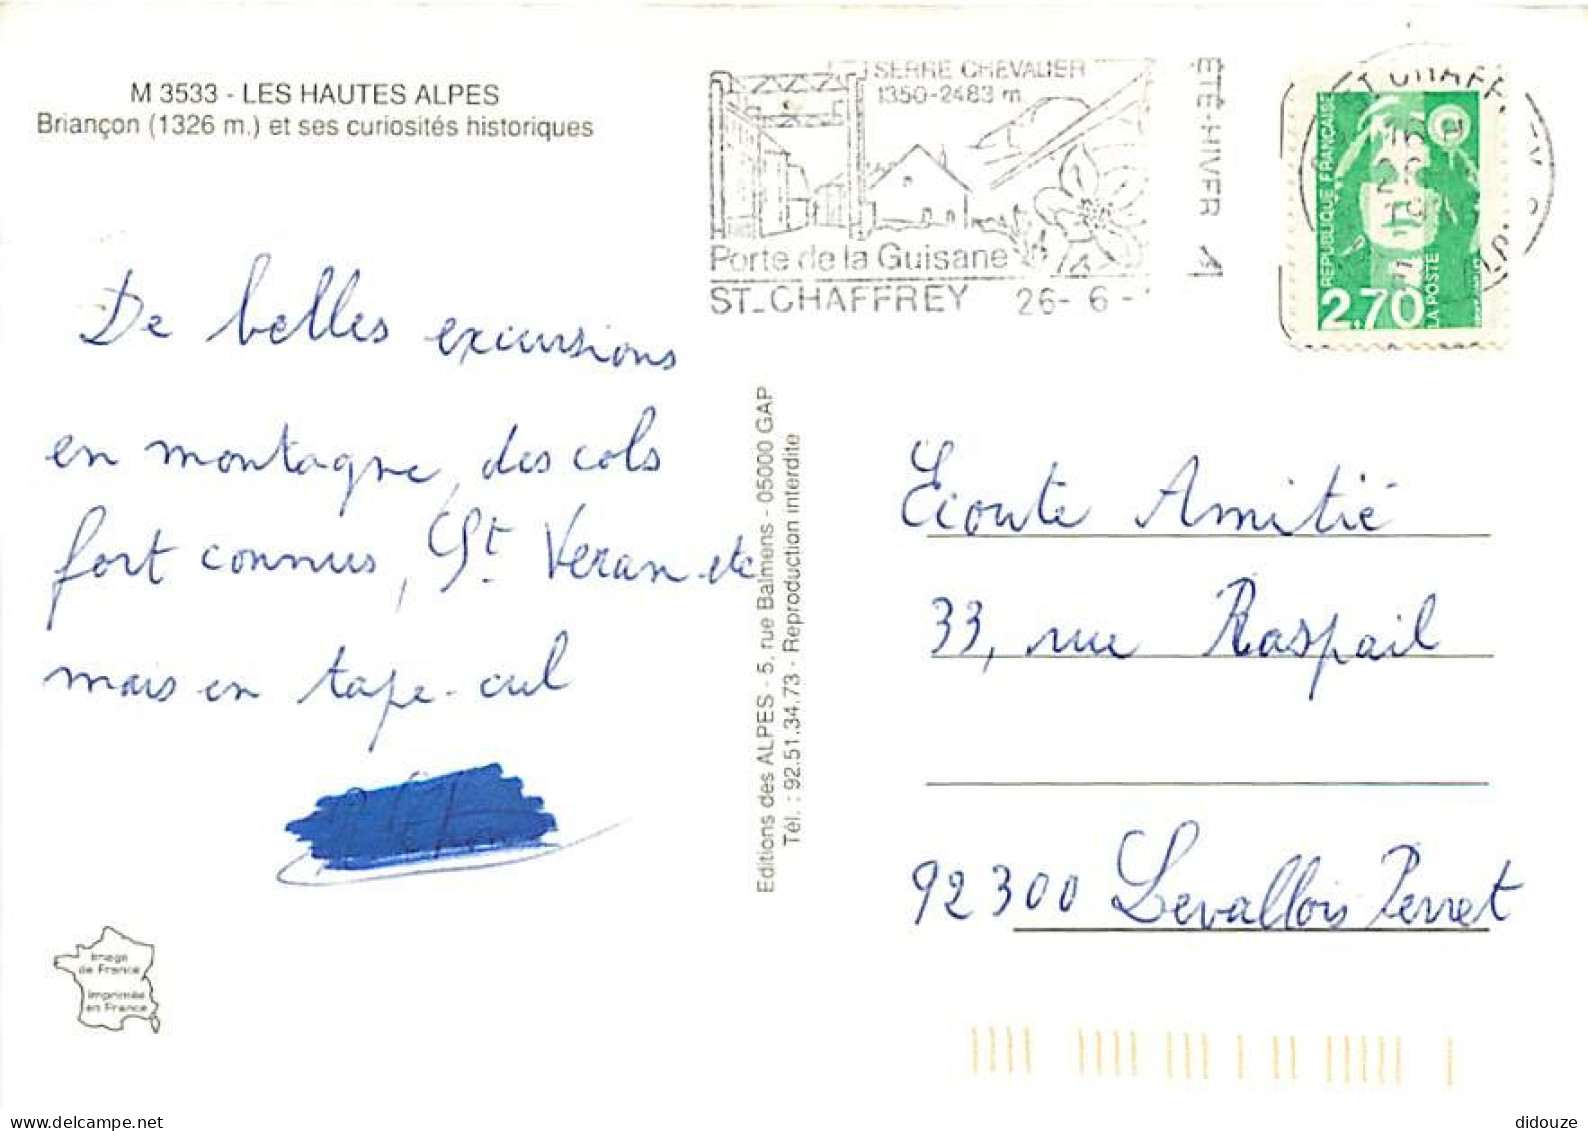 M 3533 - LES HAUTES ALPES
Briançon (1326 m.) et ses curiosités historiques
SERRE CHEVALIER
1350-2483 m
Porte de la Guisane
ST_CHAFFREY 26- 6 -
ÉTÉ-HIVER
RÉPUBLIQUE FRANÇAISE
2,70
LA POSTE
De belles excursions
en montagne, des cols
fort connus, St Veran etc
mais en tape-cul
Editions des ALPES - 5, rue Balmens - 05000 GAP
Tél. : 92.51.34.73 - Reproduction interdite
Ecoute Amitié
33, rue Raspail
92300 Levallois Perret
Image
de France
Imprimée
en France
didouze